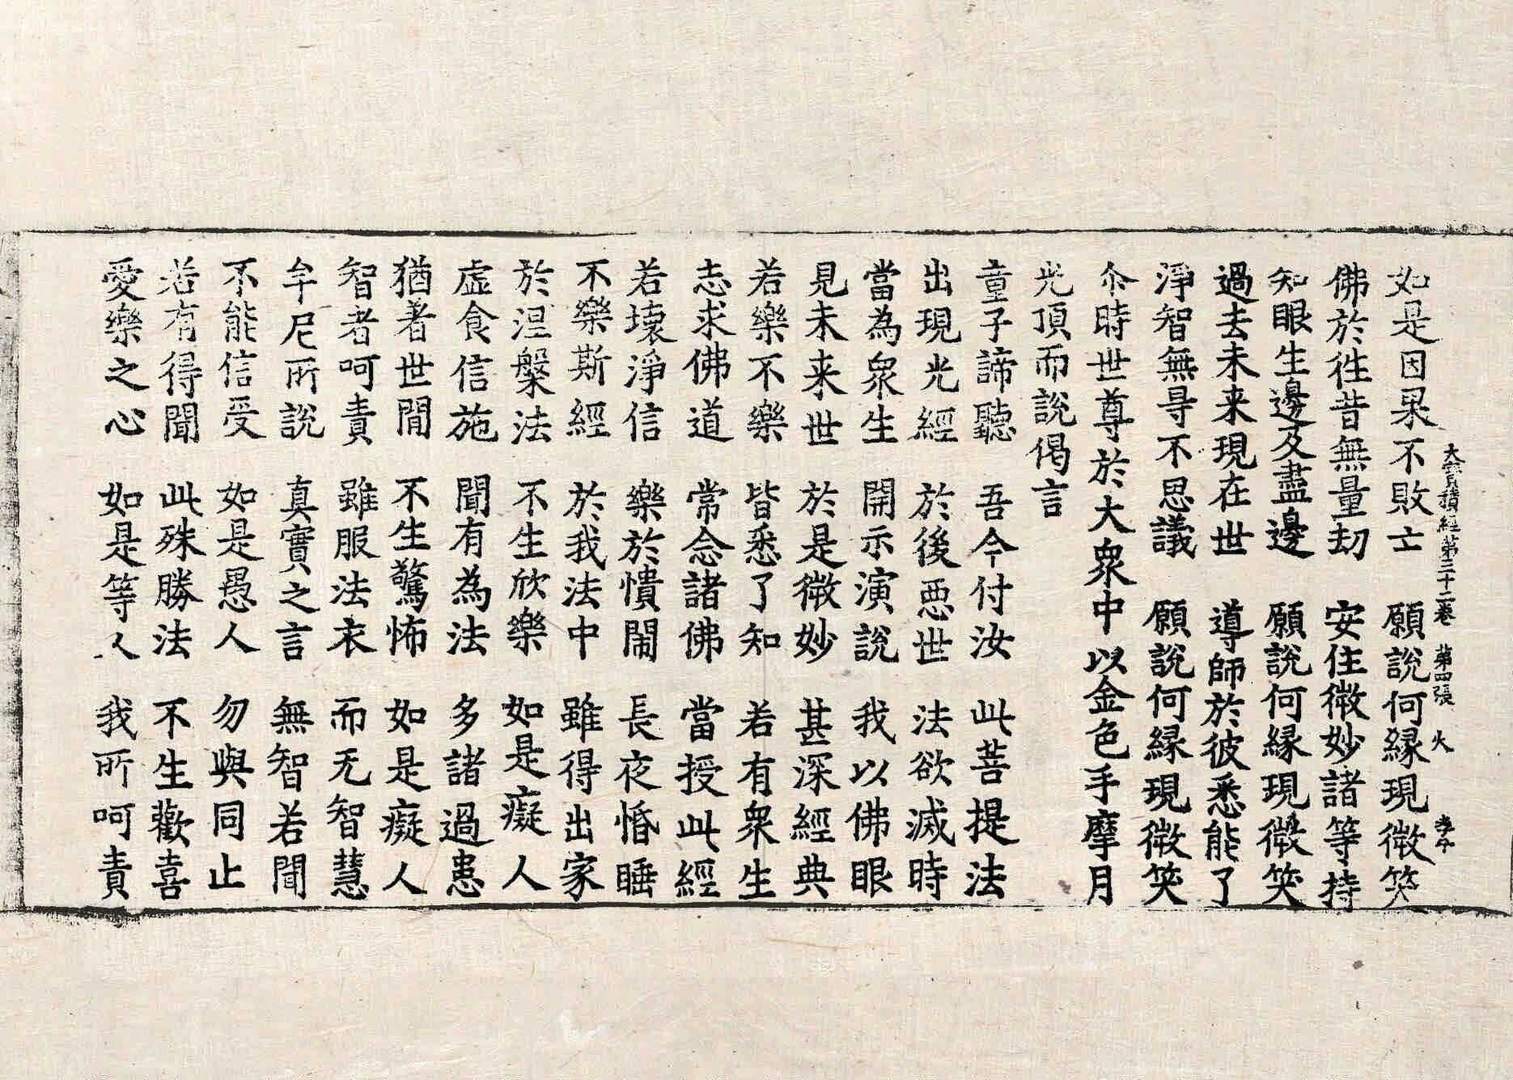 大寶積經第三十二卷　第四張　火
如是因果不敗亡　願說何緣現微笑
佛於往昔無量劫　安住微妙諸等持
知眼生邊及盡邊　願說何緣現微笑
過去未来現在世　導師於彼悉能了
淨智無㝵不思議　願說何緣現微笑
尒時世尊於大衆中以金色手摩月
光頂而說偈言
童子諦聽　吾今付汝　此菩提法
出現光經　於後惡世　法欲滅時
當為衆生　開示演說　我以佛眼
見未来世　於是微妙　甚深經典
若樂不樂　皆悉了知　若有衆生
志求佛道　常念諸佛　當授此經
若壞淨信　樂於憒閙　長夜惛睡
不樂斯經　於我法中　雖得出家
於涅槃法　不生欣樂　如是癡人
虛食信施　聞有為法　多諸過患
猶著世間　不生驚怖　如是癡人
智者呵責　雖服法衣　而无智慧
牟尼所說　真實之言　無智若聞
不能信受　如是愚人　勿與同止
若有得聞　此殊勝法　不生歡喜
愛樂之心　如是等人　我所呵責